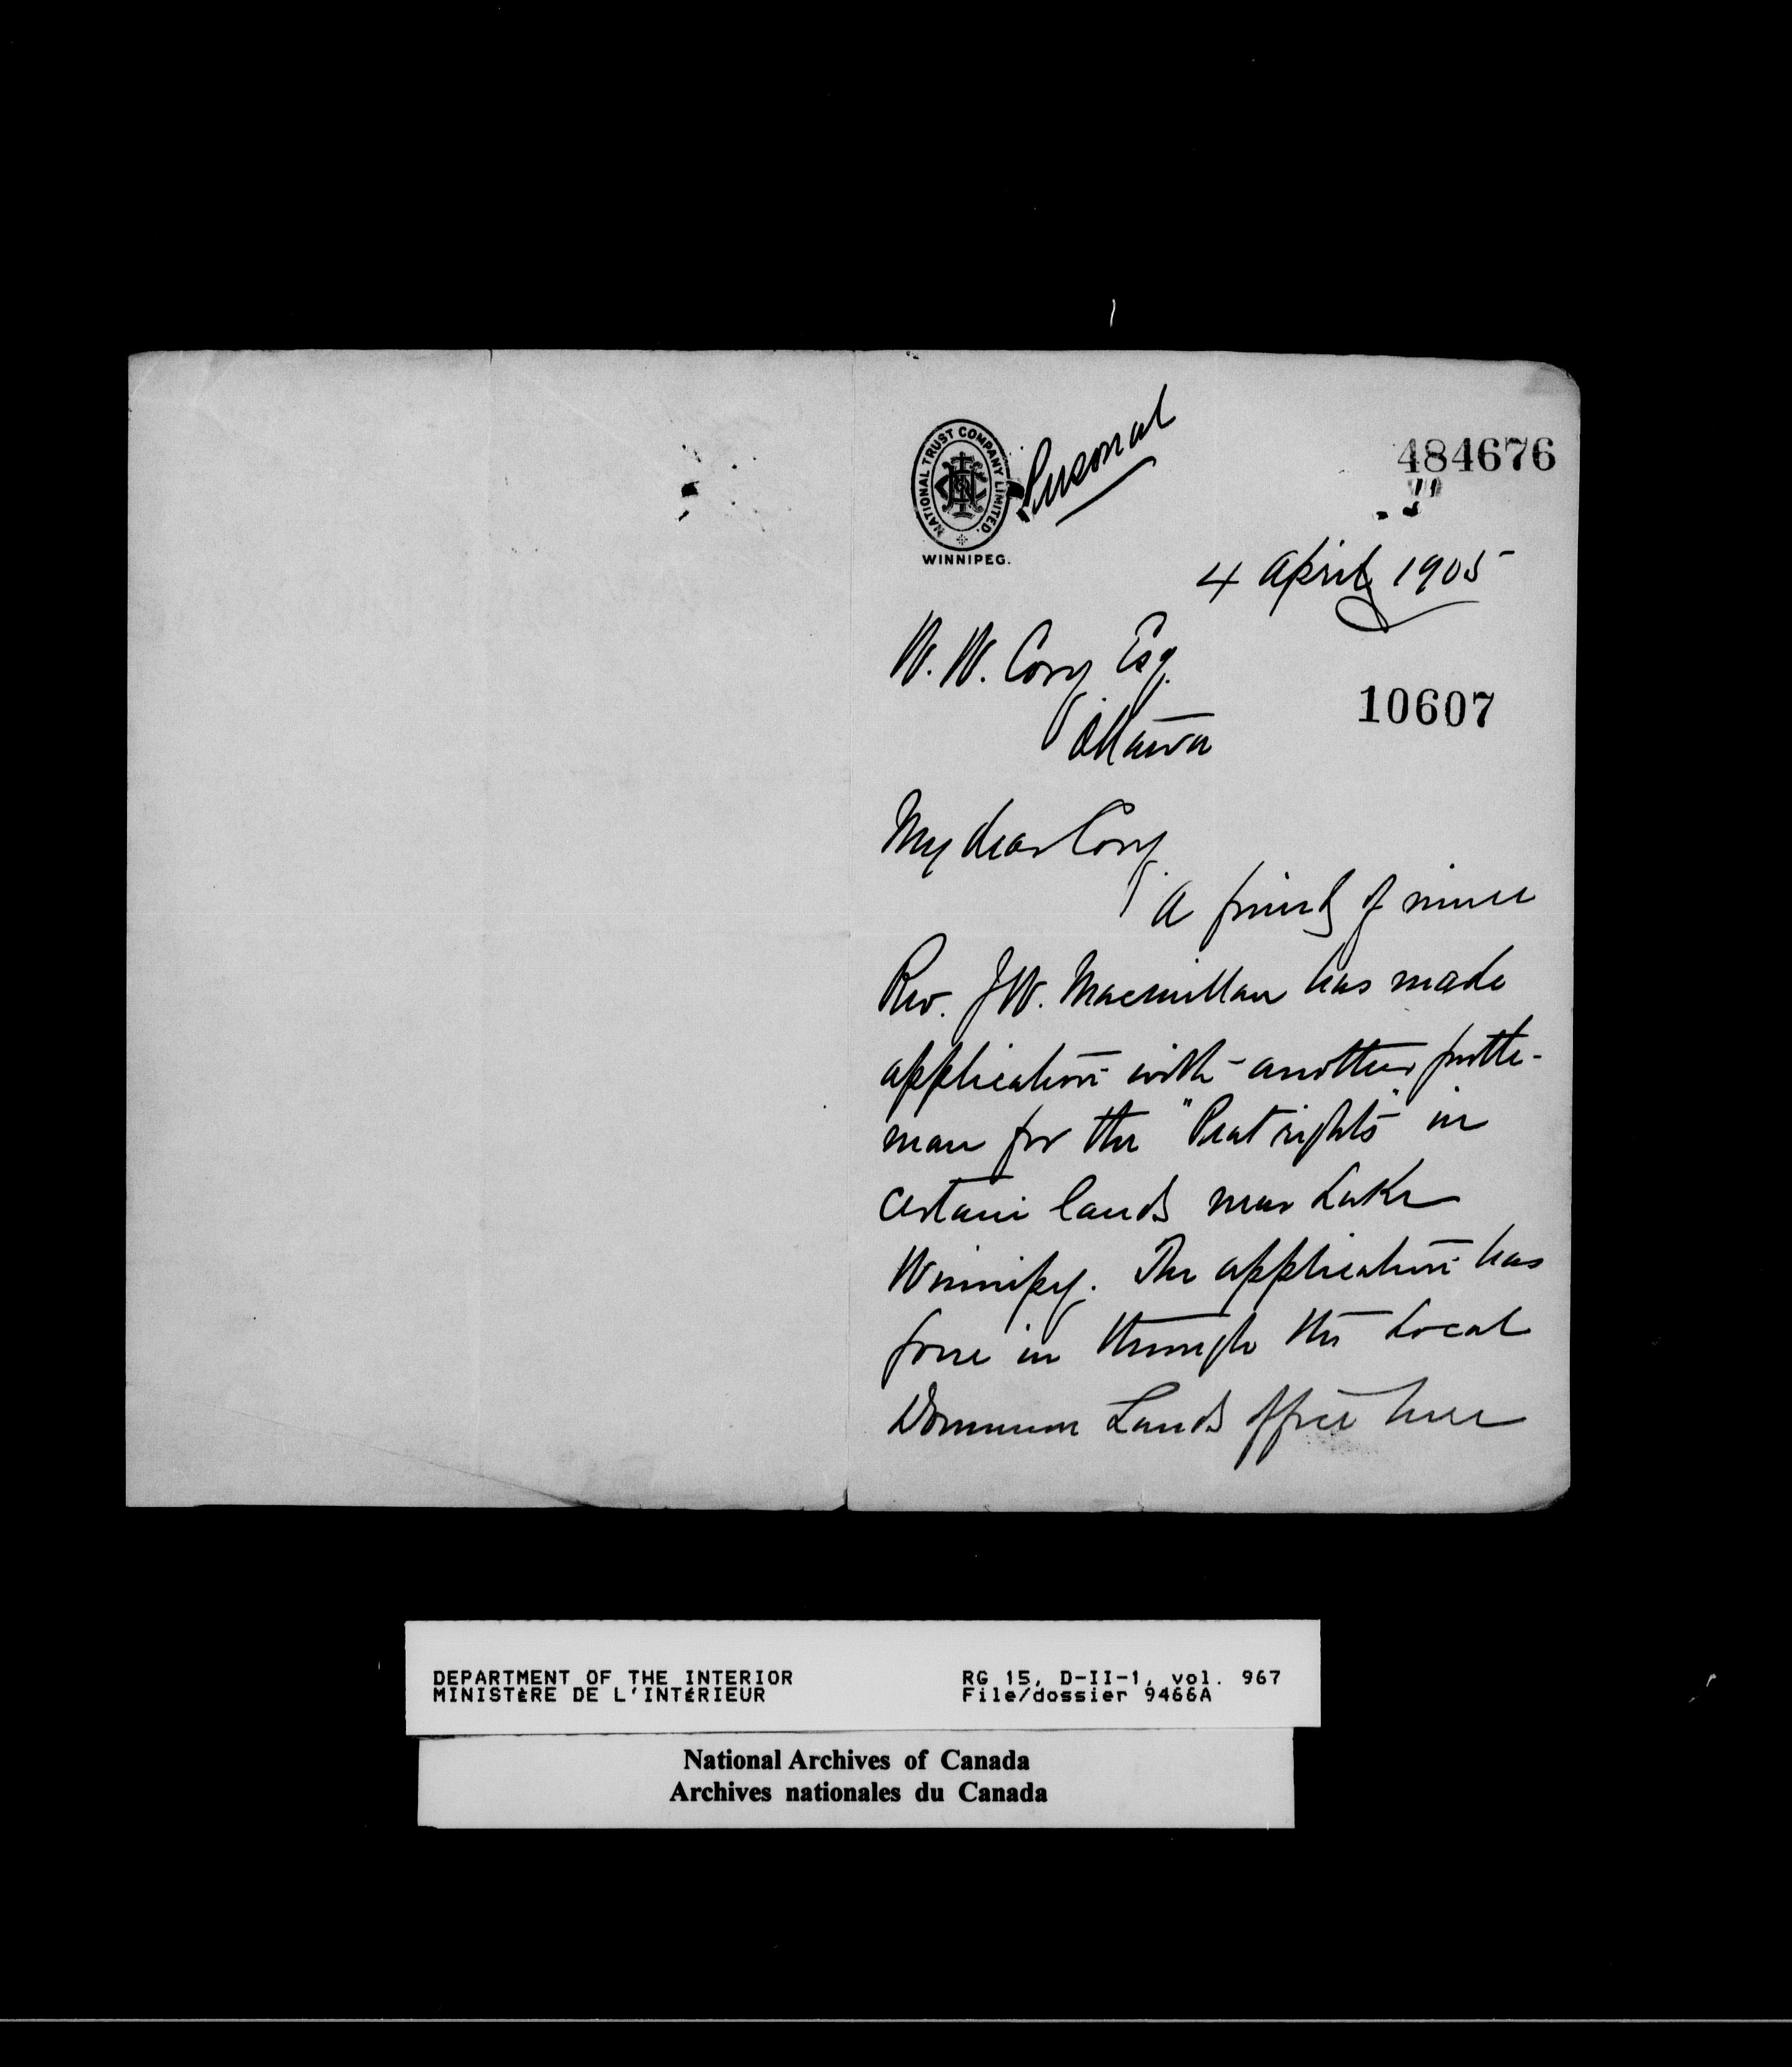 NATIONAL TRUST COMPANY LIMITED.
WINNIPEG.
Personal
484676
4 April 1905
W. W. Cory Esq.
10607
Ottawa
My dear Cory
A friend of mine
Rev. J W. Macmillan has made
application with another gentle-
man for the "Peat rights" in
certain lands near Lake
Winnipeg. The application has
gone in through the Local
Dominion Lands Office here
DEPARTMENT OF THE INTERIOR RG 15, D-II-1, vol. 967
MINISTÈRE DE L'INTÉRIEUR File/dossier 9466A
National Archives of Canada
Archives nationales du Canada